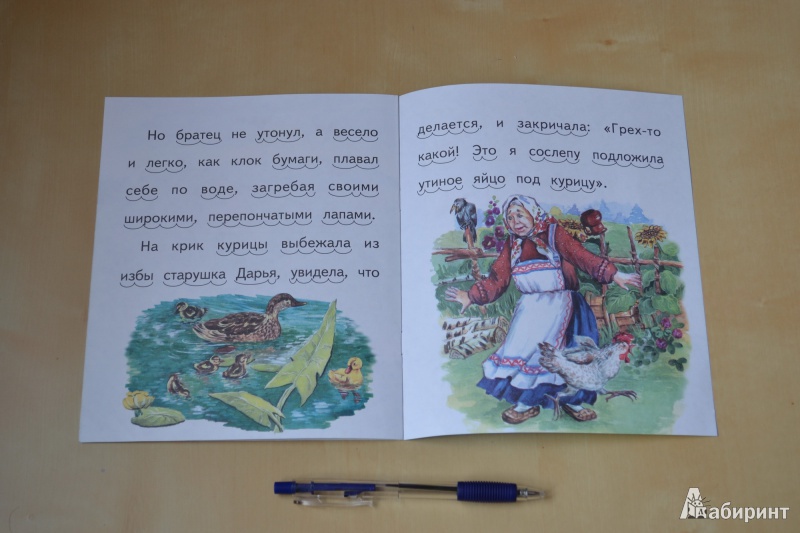 Но братец не утонул, а весело
и легко, как клок бумаги, плавал
себе по воде, загребая своими
широкими, перепончатыми лапами.
На крик курицы выбежала из
избы старушка Дарья, увидела, что
делается, и закричала: «Грех-то
какой! Это я сослепу подложила
утиное яйцо под курицу».
Лабиринт